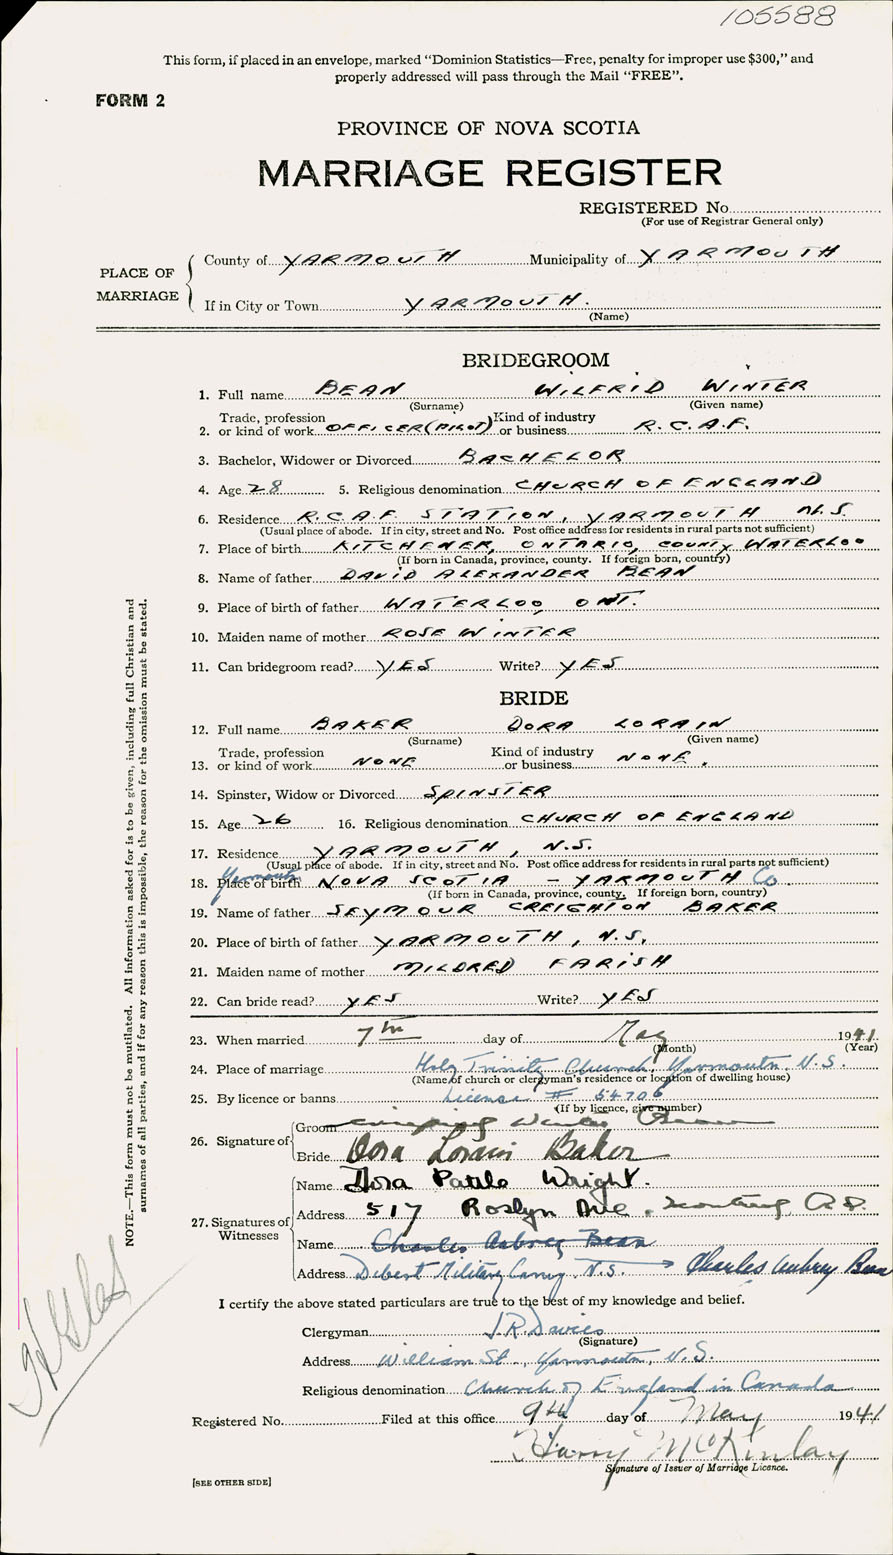 105588
This form, if placed in an envelope, marked “Dominion Statistics—Free, penalty for improper use $300,” and
properly addressed will pass through the Mail “FREE”.
FORM 2
PROVINCE OF NOVA SCOTIA
MARRIAGE REGISTER
REGISTERED No.
(For use of Registrar General only)
PLACE OF MARRIAGE
County of YARMOUTH Municipality of YARMOUTH
If in City or Town YARMOUTH.
(Name)
BRIDEGROOM
1. Full name BEAN WILFRID WINTER
(Surname) (Given name)
2. Trade, profession or kind of work OFFICER (PILOT) Kind of industry or business R.C.A.F.
3. Bachelor, Widower or Divorced BACHELOR
4. Age 28 5. Religious denomination CHURCH OF ENGLAND
6. Residence R.C.A.F. STATION, YARMOUTH N.S.
(Usual place of abode. If in city, street and No. Post office address for residents in rural parts not sufficient)
7. Place of birth KITCHENER, ONTARIO, COUNTY WATERLOO
(If born in Canada, province, county. If foreign born, country)
8. Name of father DAVID ALEXANDER BEAN
9. Place of birth of father WATERLOO, ONT.
10. Maiden name of mother ROSE WINTER
11. Can bridegroom read? YES Write? YES
BRIDE
12. Full name BAKER DORA LORAIN
(Surname) (Given name)
13. Trade, profession or kind of work NONE Kind of industry or business NONE.
14. Spinster, Widow or Divorced SPINSTER
15. Age 26 16. Religious denomination CHURCH OF ENGLAND
17. Residence YARMOUTH, N.S.
(Usual place of abode. If in city, street and No. Post office address for residents in rural parts not sufficient)
Yarmouth
18. Place of birth NOVA SCOTIA - YARMOUTH Co
(If born in Canada, province, county. If foreign born, country)
19. Name of father SEYMOUR CREIGHTON BAKER
20. Place of birth of father YARMOUTH, N.S.
21. Maiden name of mother MILDRED FARISH
22. Can bride read? YES Write? YES
23. When married 7th day of May 1941
(Month) (Year)
24. Place of marriage Holy Trinity Church, Yarmouth, N.S.
(Name of church or clergyman's residence or location of dwelling house)
25. By licence or banns License # 54706
(If by licence, give number)
26. Signature of
Groom Winter Bean
Bride Dora Lorain Baker
27. Signatures of Witnesses
Name Dora Wright.
Address 517 Roslyn Ave.
Name Charles Aubrey Bean
Address Debert Military Camp, N.S. → Charles Aubrey Bean
I certify the above stated particulars are true to the best of my knowledge and belief.
Clergyman J.R. Davies
(Signature)
Address William St., Yarmouth, N.S.
Religious denomination Church of England in Canada
Registered No. Filed at this office 9th day of May 1941
Harry McKinlay
Signature of Issuer of Marriage Licence.
[SEE OTHER SIDE]
NOTE.—This form must not be mutilated. All information asked for is to be given, including full Christian and
surnames of all parties, and if for any reason this is impossible, the reason for the omission must be stated.